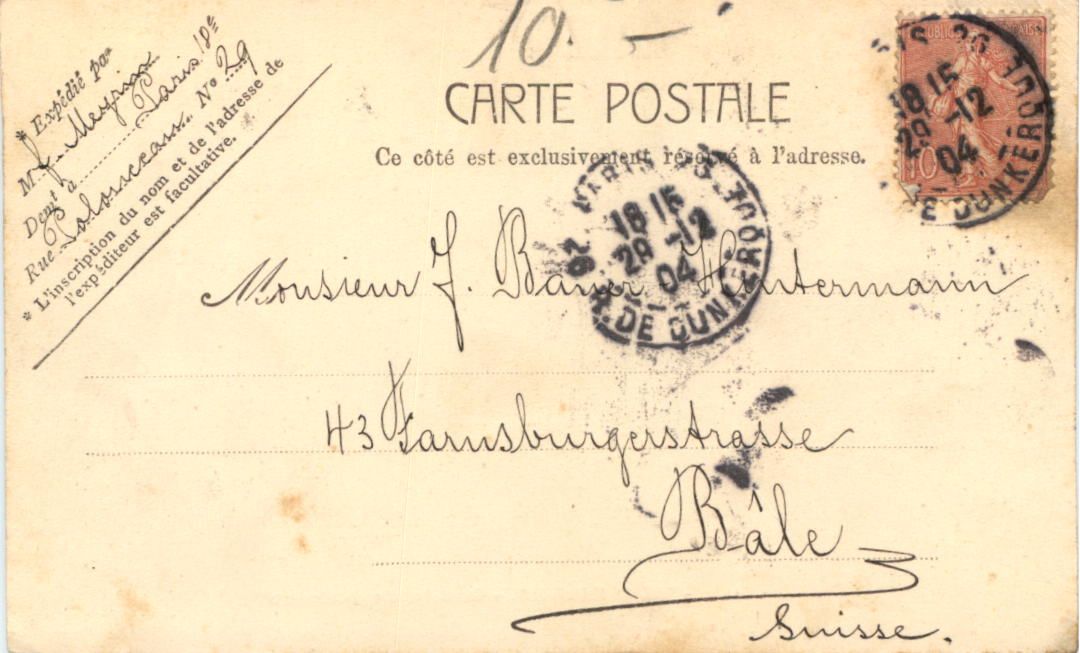 10.-
CARTE POSTALE
Ce côté est exclusivement réservé à l'adresse.
* Expédié par
M J. Meyrin
Demt à Paris 18e
Rue N° 29
* L'inscription du nom et de l'adresse de
l'expéditeur est facultative.
18 15
29 -12
04
DUNKERQUE
10
PARIS
18 15
29 -12
04
R. DE DUNKERQUE
Monsieur J. Bauer Hintermann
43 Farnsburgerstrasse
Bâle
Suisse.